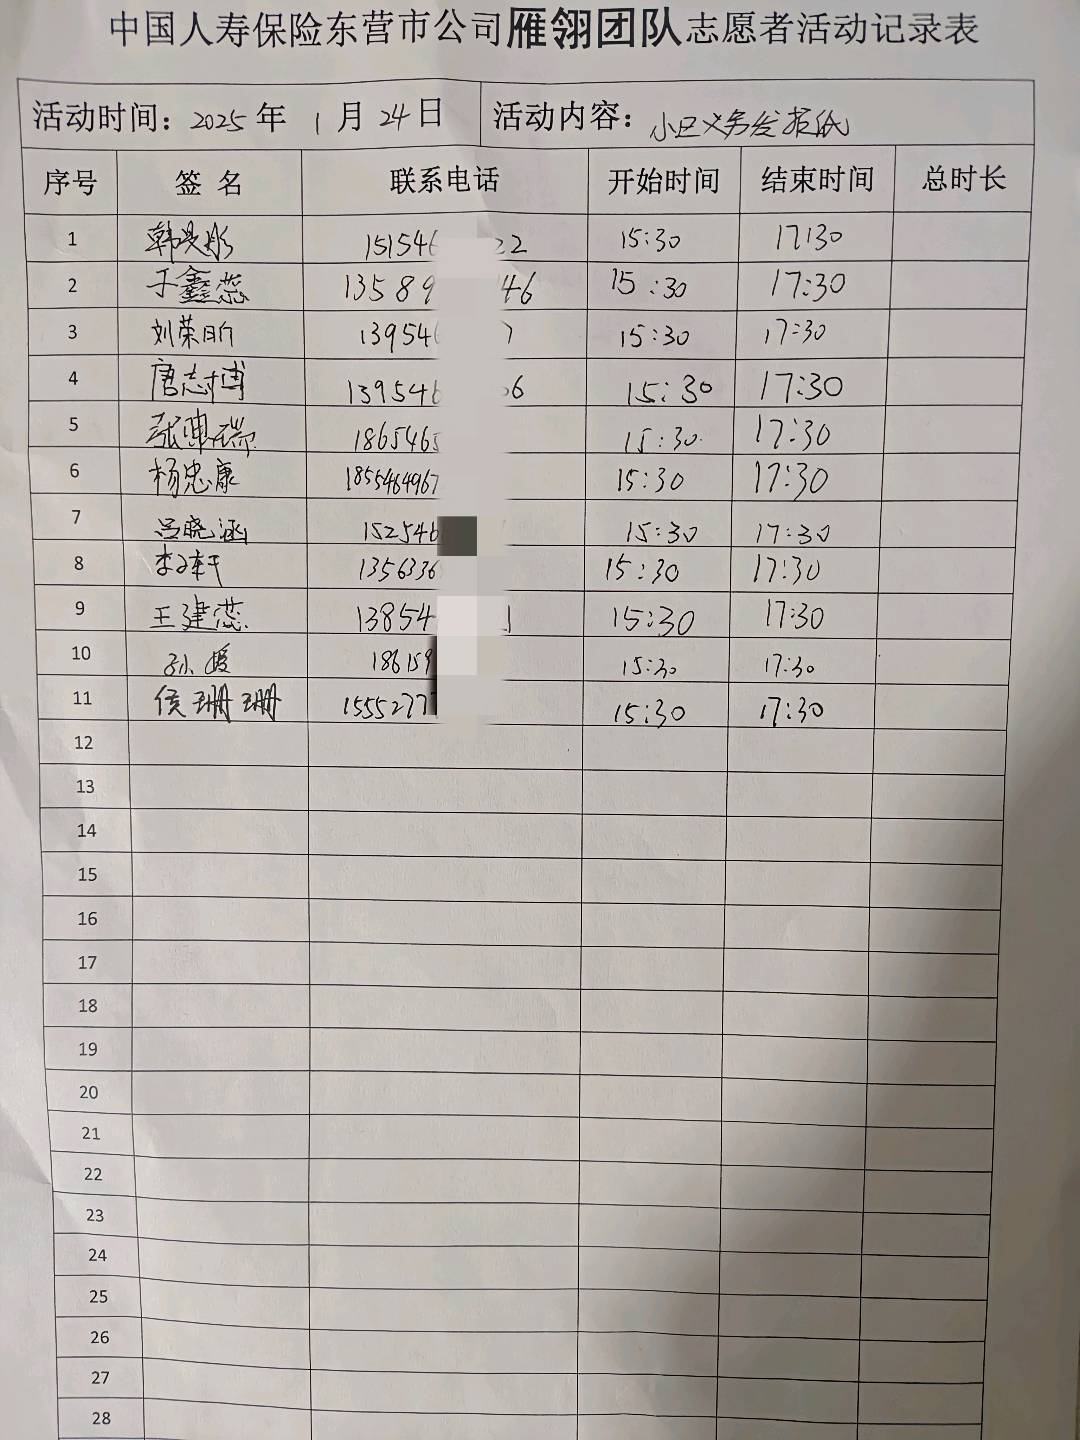 中国人寿保险东营市公司雁翎团队志愿者活动记录表
活动时间：2025年 1月24日 活动内容：小区义务发报纸
序号 签名 联系电话 开始时间 结束时间 总时长
1 韩 彤 151546 22 15:30 17:30
2 于鑫蕊 13589 46 15:30 17:30
3 刘荣昕 139546 7 15:30 17:30
4 唐志博 139546 66 15:30 17:30
5 张 瑞 1865465 15:30 17:30
6 杨忠康 1855464967 15:30 17:30
7 吕晓涵 152546 15:30 17:30
8 李子轩 1356336 15:30 17:30
9 王建蕊 13854 1 15:30 17:30
10 孙媛 186159 15:30 17:30
11 侯珊珊 15552777 15:30 17:30
12
13
14
15
16
17
18
19
20
21
22
23
24
25
26
27
28